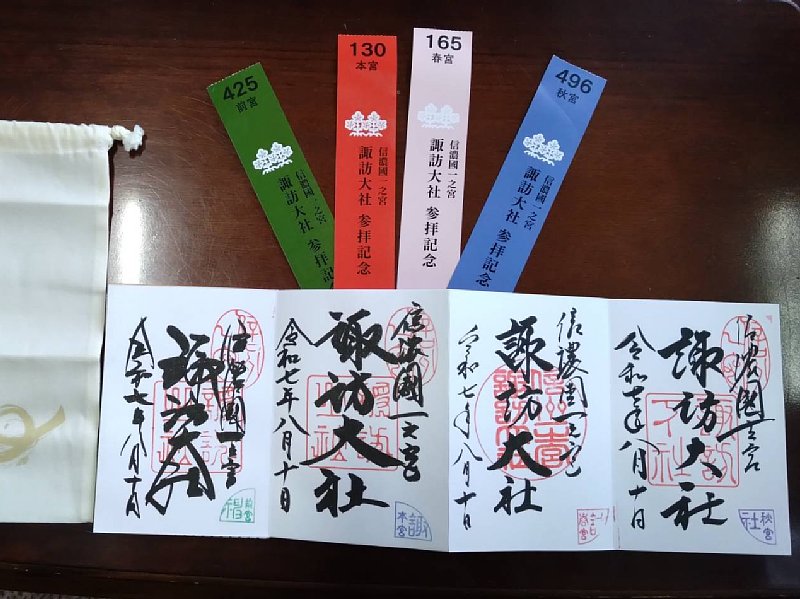 425
前宮
信濃國一之宮
諏訪大社 参拝記
130
本宮
信濃國一之宮
諏訪大社 参拝記念
165
春宮
信濃國一之宮
諏訪大社 参拝記念
496
秋宮
信濃國一之宮
諏訪大社 参拝記念
信濃國一之宮
諏訪大社
令和七年八月十日
前宮
信濃國一之宮
諏訪大社
令和七年八月十日
諏
本宮
信濃國一之宮
諏訪大社
令和七年八月十日
春宮
信濃國一之宮
諏訪大社
令和七年八月十日
秋宮
社